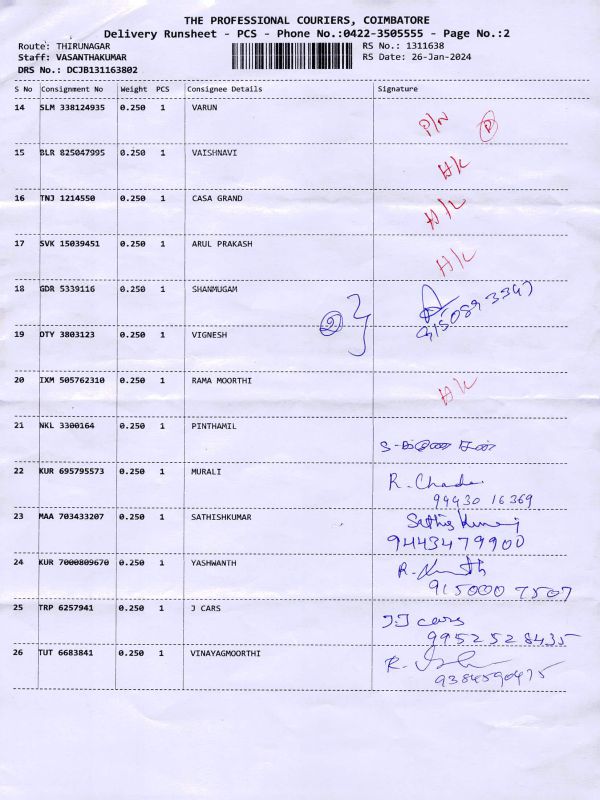 THE PROFESSIONAL COURIERS, COIMBATORE
Delivery Runsheet - PCS - Phone No.:0422-3505555 - Page No.:2
Route: THIRUNAGAR RS No.: 1311638
Staff: VASANTHAKUMAR RS Date: 26-Jan-2024
DRS No.: DCJB131163802
S No Consignment No Weight PCS Consignee Details Signature
14 SLM 338124935 0.250 1 VARUN P/N P
15 BLR 825047995 0.250 1 VAISHNAVI H/L
16 TNJ 1214550 0.250 1 CASA GRAND H/L
17 SVK 15039451 0.250 1 ARUL PRAKASH H/L
18 GDR 5339116 0.250 1 SHANMUGAM
2 } 9150893347
19 OTY 3803123 0.250 1 VIGNESH
20 IXM 505762310 0.250 1 RAMA MOORTHI H/L
21 NKL 3300164 0.250 1 PINTHAMIL
22 KUR 695795573 0.250 1 MURALI R. Chade
94430 16369
23 MAA 703433207 0.250 1 SATHISHKUMAR Sathis Kumar
9443479900
24 KUR 7000809670 0.250 1 YASHWANTH
915000 7507
25 TRP 6257941 0.250 1 J CARS J.J cars
9952528435
26 TUT 6683841 0.250 1 VINAYAGMOORTHI
9384590475